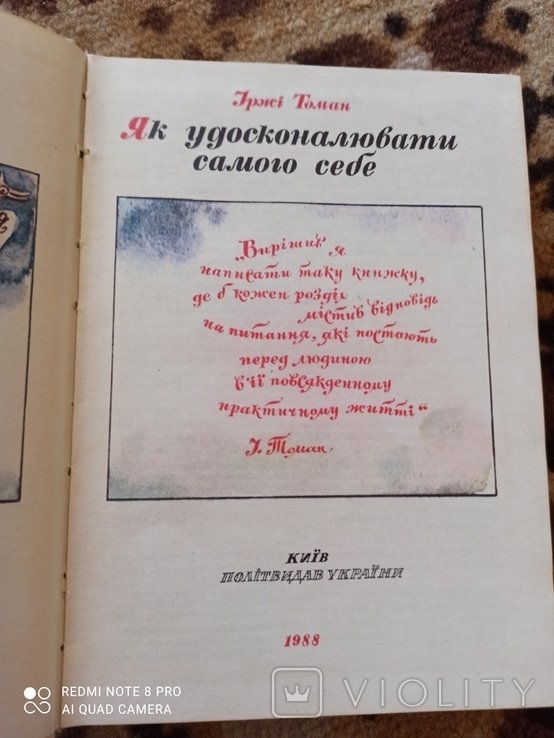 Іржі Томан
Як удосконалювати
самого себе
„Вирішив я
написати таку книжку,
де б кожен розділ
містив відповідь
на питання, які постають
перед людиною
в її повсякденному
практичному житті“
І. Томан
КИЇВ
ПОЛІТВИДАВ УКРАЇНИ
1988
REDMI NOTE 8 PRO
AI QUAD CAMERA
VIOLITY